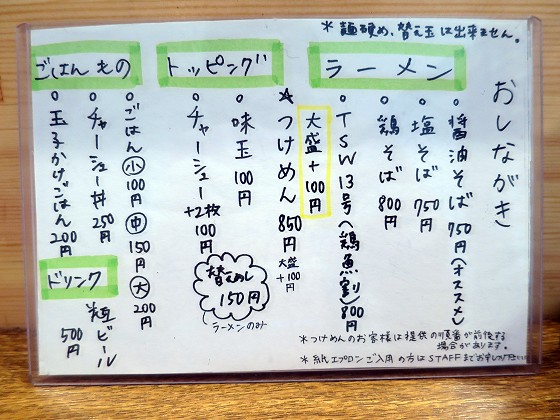 ＊麺硬め、替え玉は出来ません。
おしながき
ラーメン
○醤油そば 750円（オススメ）
○塩そば 750円
○鶏そば 800円
○TSW13号（鶏魚割）800円
大盛+100円
☆つけめん 850円 大盛+100円
トッピング
○味玉 100円
○チャーシュー+2枚 100円
替えめし 150円
ラーメンのみ
ごはんもの
○ごはん 小 100円 中 150円 大 200円
○チャーシュー丼 250円
○玉子かけごはん 200円
ドリンク
ビール 500円
＊つけめんのお客様は提供の順番が前後する
場合があります。
＊紙エプロンご入用の方はSTAFFまでお申し付け下さい